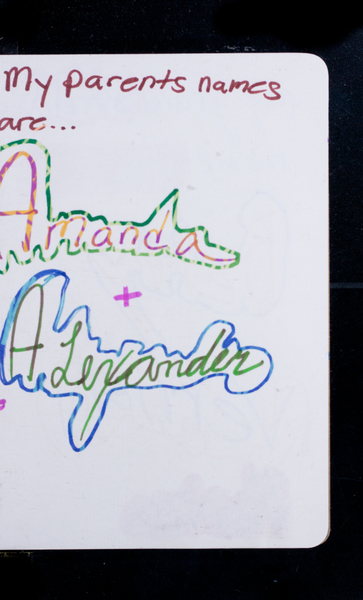 My parents names
are...
Amanda
+
Alexander